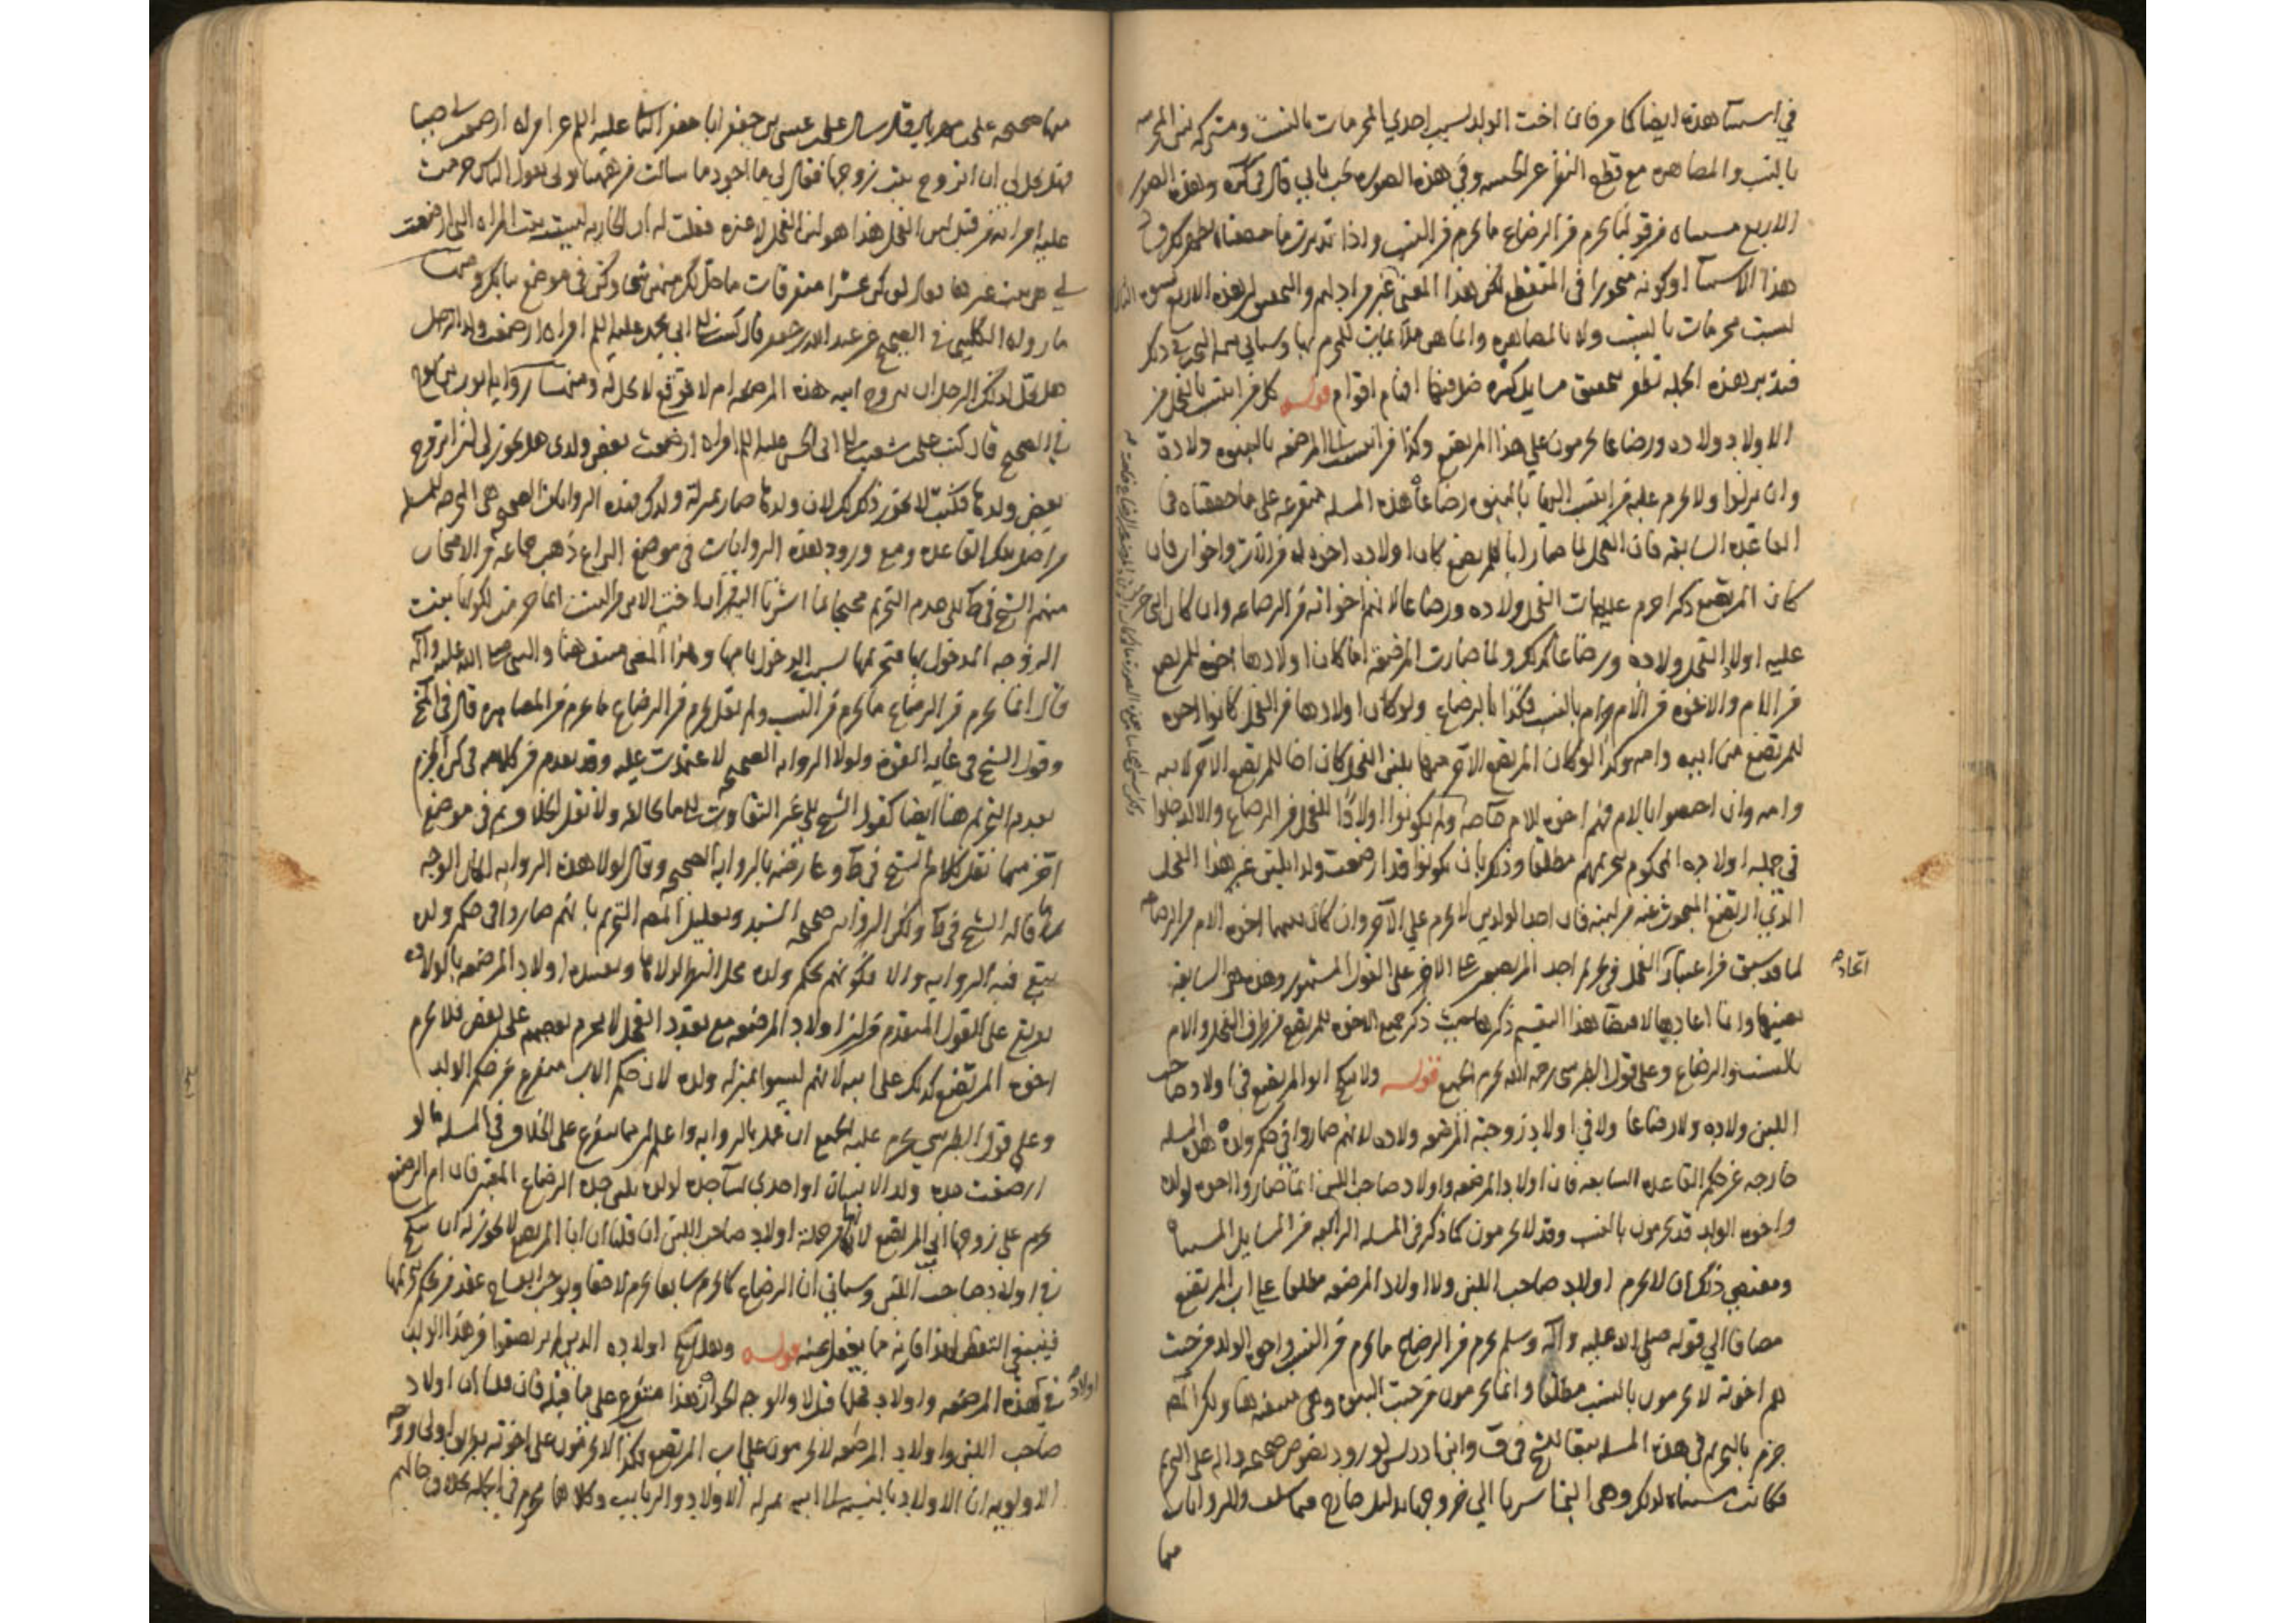 في استثناء هذه ايضا كما مر فان اخت الولد ليست احدي المحرمات بالنسب ومشتركه بين المحرمه
بالنسب والمصاهره مع قطع النظر عن الخمسه وفي هذه الصوره يجب قال في كره وهذه الصور
الاربع مستثناه من قولنا يحرم من الرضاع ما يحرم من النسب واذا تدبرت ما حققناه
هذا الاستثناء او كونه متجوزا في المنقطع لكن هذا المعنى غير مراد لهم والتحقيق ان هذه الاربع
ليست محرمات بالنسب ولا بالمصاهره وانما هي ملازمات للمحرم بها وسياتي في ذكر
فتدبر هذه الجمله تظفر بتحقيق مسايل كثيره ضل فيها افهام اقوام قوله كل من انتسب بالفحل من
الاولاد ولاده ورضاعا يحرمون علي هذا المرتضع وكذا من انتسب الى المرضعه بالبنوه ولادة
وان نزلوا ولا يحرم عليه من انتسب اليها بالبنوه رضاعا هذه المسله متفرعه على ما حققناه في
القاعده السابقه فان الفحل لما صار ابا للمرتضع كان اولاده اخوه له من الاب واخوات فان
كان المرتضع ذكرا حرم عليه بنات الفحل ولاده ورضاعا لانهم اخواته من الرضاعه وان كان انثى حرم
عليه اولاد الفحل ولاده ورضاعا كذلك ولما صارت المرضعة اما كان اولادها اخوه للمرتضع
من الام والاخوه من الام حرام بالنسب فكذا بالرضاع ولو كان اولادها من الفحل كانوا اخوه
للمرتضع من ابيه وامه وكذا لو كان المرتضع الآخر منها بلبن الفحل كان اخا للمرتضع الآخر لابيه
وامه وان اختصوا بالام فهم اخوه للام خاصه ولم يكونوا اولادا للفحل من الرضاع والا لدخلوا
في جمله اولاده المحكوم بتحريمهم مطلقا وذكر بان يكونوا قد ارضعت ولدا بلبن غير هذا الفحل
الذي ارتضع المبحوث عنه من لبنه فان احد الولدين لا يحرم علي الآخر وان كان بينهما اخوه الام من الرضاع
لما قد سبق من اعتبار الفحل في تحريم احد المرتضعين على الاخر على القول المشهور وهذه هي السابقه
اتحاد
بعينها وانما اعادها لاقتضاء هذا التقسيم ذكرها حيث ذكر جميع الاخوه للمرتضع من طرف الفحل والام
بالنسب والرضاع وعلى قول الطبرسي رحمه الله يحرم الجميع قوله ولا ينكح ابو المرتضع في اولاد صاحب
اللبن ولاده ولا رضاعا ولا في اولاد زوجته المرضعه ولاده لانهم صاروا في حكم ولده هذه المسله
خارجه عن حكم القاعده السابقه فان اولاد المرضعه واولاد صاحب اللبن انما صاروا اخوه لولده
واخوه الولد قد يحرمون بالنسب وقد لا يحرمون كما ذكر في المسله الرابعه من المسايل المستثناه
ومقتضى ذلك ان لا يحرم اولاد صاحب اللبن ولا اولاد المرضعه مطلقا على اب المرتضع
مضافا الي قوله صلى الله عليه وآله وسلم يحرم من الرضاع ما يحرم من النسب واخو الولد من حيث
هم اخوته لا يحرمون بالنسب مطلقا وانما يحرمون من حيث البنوه وهي منتفيه هنا ولكن المص
جزم بالتحريم في هذه المسله تبعا للشيخ في ف وابن ادريس لورود نصوص صحيحه داله على التحريم
فكانت مستثناه لذلك وهي التي اشرنا الي خروجها بدليل خارج فيما سلف والروايات
منها
منها صحيحه علي بن مهزيار قال سال علي بن عيسى بن جعفر ابا جعفر الثاني عليه السلم عن امراه ارضعت لي صبيا
فهل يحل لي ان اتزوج بنت زوجها فقال لي ما اجود ما سالت من ههنا يوتى ان يقول الناس حرمت
عليه امراته من قبل لبن الفحل هذا هو لبن الفحل لا غيره فقلت له ان الجاريه ليست بنت المراه التي ارضعت
لي هي بنت غيرها فقال لو كن عشرا متفرقات ما حل لك منهن شيء وكن في موضع بناتك ومنها
ما رواه الكليني في الصحيح عن عبد الله بن جعفر قال كتبت الى ابي محمد عليه السلم امراه ارضعت ولد الرجل
هل يحل لذلك الرجل ان يتزوج ابنه هذه المرضعه ام لا فوقع لا يحل له ومنها رواية ايوب بن نوح
في الصحيح قال كتب علي بن شعيب الى ابي الحسن عليه السلم امراه ارضعت بعض ولدي هل يجوز لي ان اتزوج
بعض ولدها فكتب لا يجوز ذلك لك لان ولدها صار بمنزلة ولدك فهذه الروايات الصحيحه هي المخرجه للمسله
من اصل تلك القاعده ومع ورود هذه الروايات في موضع النزاع ذهب جماعه من الاصحاب
منهم الشيخ في ط الى عدم التحريم محتجا بما اشرنا اليه من ان اخت الابن من النسب انما حرمت لكونها بنت
الزوجه المدخول بها فتحريمها بسبب الدخول بامها وهذا المعنى منتف هنا والنبي صلى الله عليه وآله
قال انما يحرم من الرضاع ما يحرم من النسب ولم يقل يحرم من الرضاع ما يحرم من المصاهره قال في المخ
وقول الشيخ في غايه القوة ولولا الروايه الصحيحه لاعتمدت عليه وقد تقدم من كلامه في كره الجزم
بعدم التحريم هنا ايضا كقول الشيخ الى غير التفاوت
آخر منها نقل كلام الشيخ في ط وعارضه بالروايه الصحيحه وقال لولا هذه الروايه لكان الوجه
ما قاله الشيخ في ط ولكن الروايه صحيحه السند وتعليل المص التحريم بانهم صاروا في حكم ولده
يتبع فيه الروايه والا فكونهم بحكم ولده محل النظر لولاها وتقييده اولاد المرضعه بالولاده
يتفرع على القول المتقدم من ان اولاد المرضعه مع تعدد الفحل لا يحرم بعضهم على بعض فلا يحرم
اخوه المرتضع كذلك على ابيه لانهم ليسوا بمنزله ولده لان حكم الاب متفرع عن حكم الولد
وعلى قول الطبرسي يحرم عليه الجميع ان عمل بالروايه واعلم ان مما يتفرع على الخلاف في المسله ما لو
ارضعت جده ولد الانسان او احدي نساء جده لولده بلبن جده الرضاع المعتبر فان ام الرضيع
تحرم علي زوجها ابي المرتضع لانها من جملة اولاد صاحب اللبن ان قلنا ان ابا المرتضع لا يجوز له ان ينكح
في اولاد صاحب اللبن وسياتي ان الرضاع كما يحرم سابقا يحرم لاحقا
فينبغي التفطن لهذا فانه مما يغفل عنه قوله وهل ينكح اولاده الذين لم يرتضعوا من هذا اللبن
في اولاد هذه المرضعه واولاد فحلها قيل لا والوجه الجواز هذا متفرع على ما قبله فان قلنا ان اولاد
صاحب اللبن واولاد المرضعه لا يحرمون علي اب المرتضع فكذا لا يحرمون على اخوته بطريق اولى ووجه
الاولويه ان الاولاد بالنسبه الى ابيه بمنزله الاولاد والربايب وكلاهما محرم في الجمله بخلاف حالهم